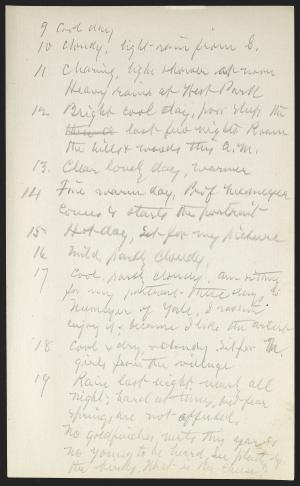 9 Cool day
10 Cloudy, light rain from S.
11 Clearing, light shower at noon
Heavy rains at West Park
12 Bright cool day, poor sleep the
last few nights Roam
the hills & woods this A.M.
13. Clear lovely day, warmer
14 Fine warm day, Prof
comes & starts the portrait
15 Hot day, sit for my picture
16 Mild, partly cloudy,
17 Cool, partly cloudy, am sitting
for my portrait these days to
of Yale, I rather
enjoy it, because I like the artist
18 Cool & dry & cloudy. Sit for
girls from the village
19 Rain last night nearly all
night, hard at times, but fear
springs are not affected.
No goldfinches nests this year &
no young to be heard, but plenty of
the birds. What is the cause?